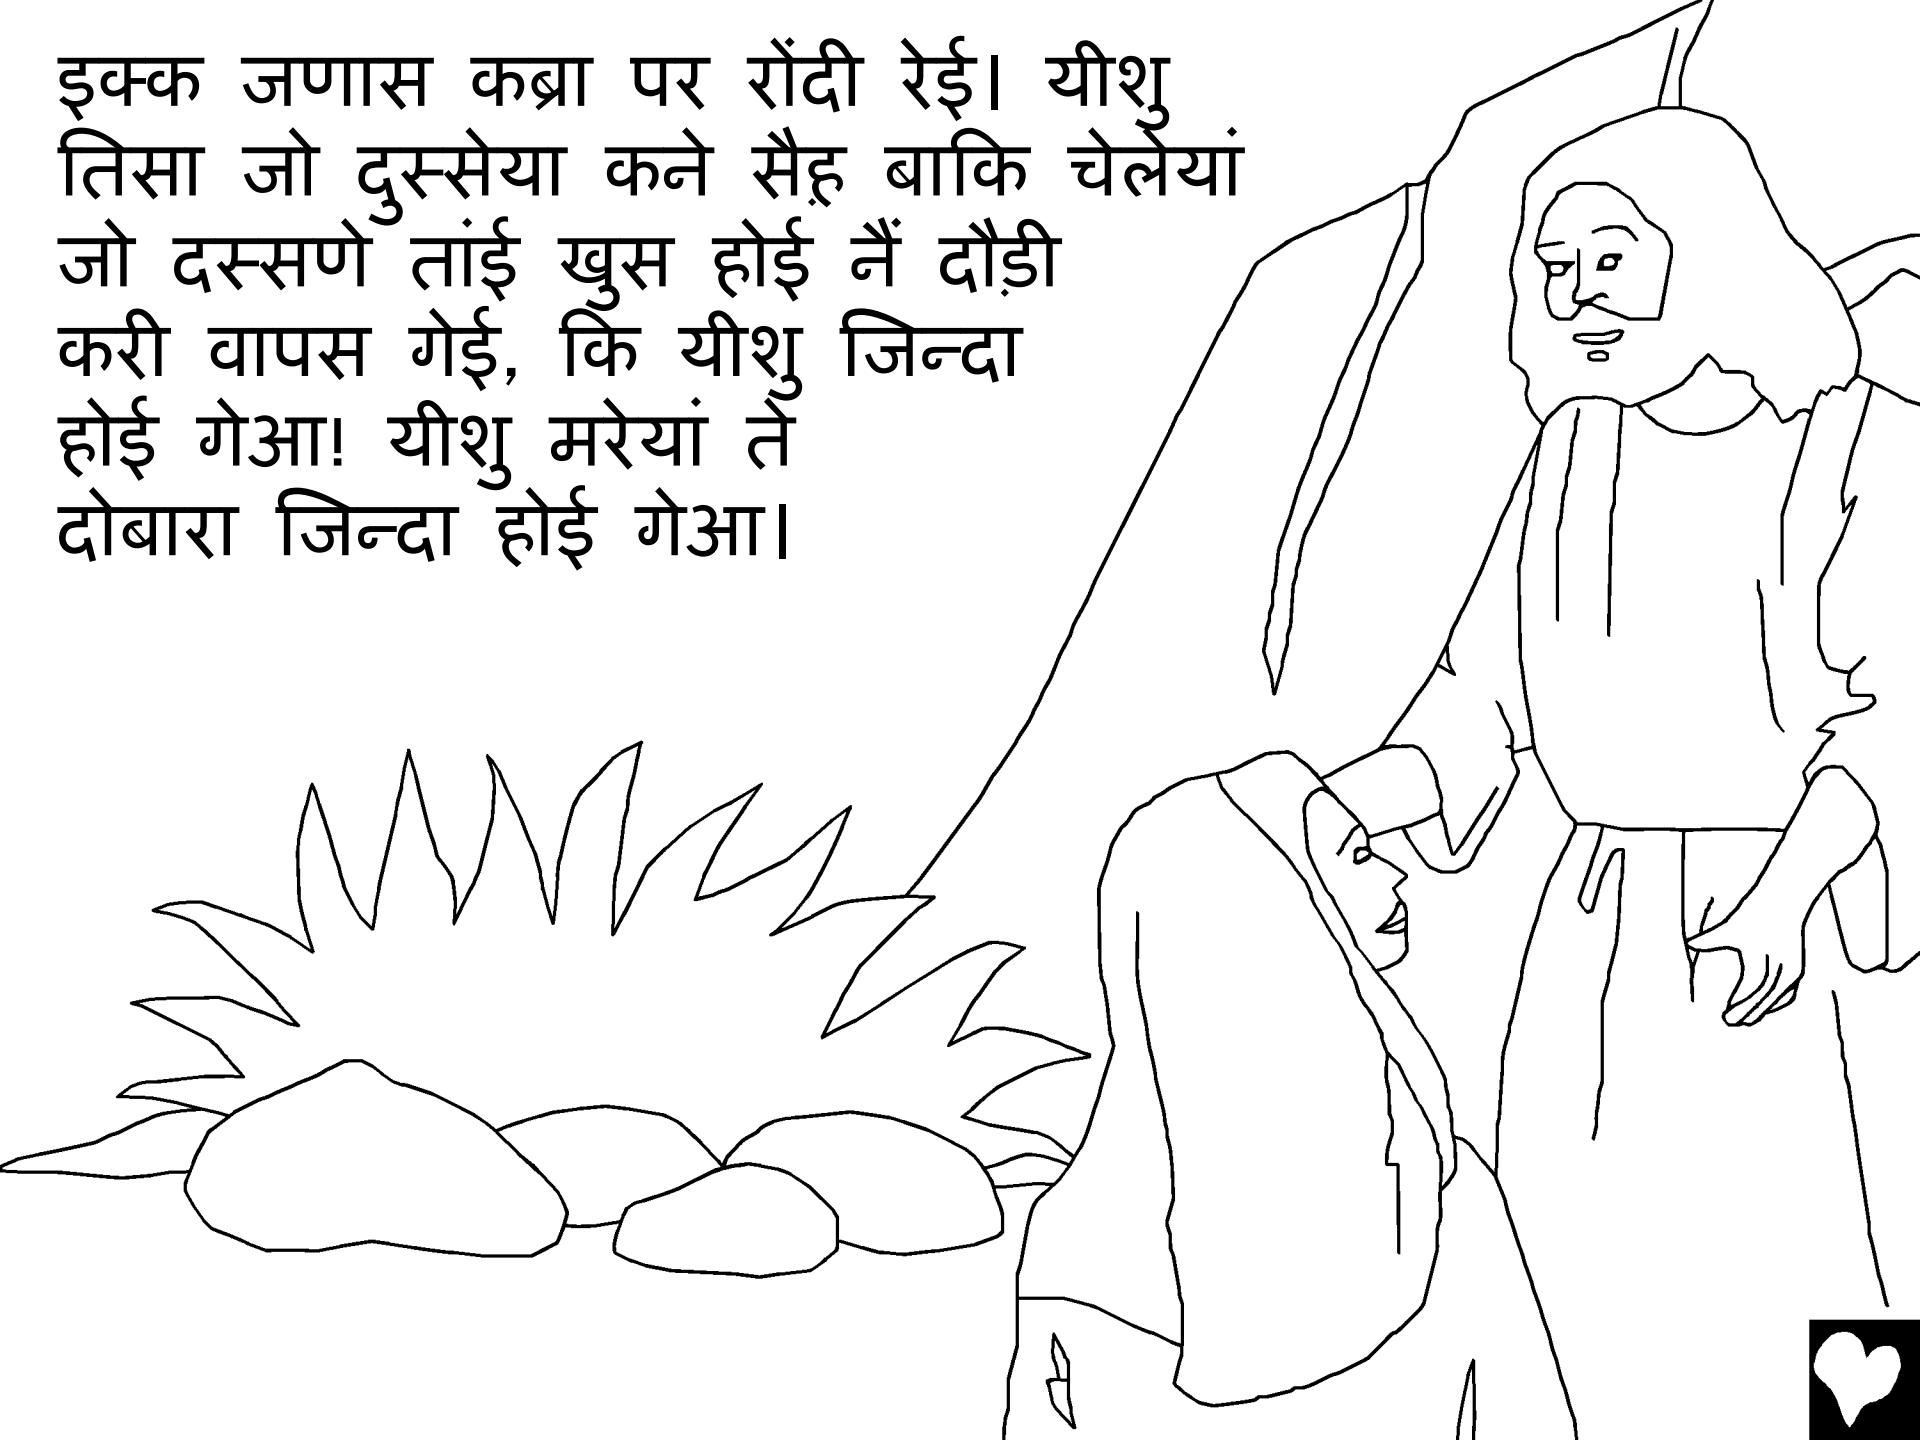 इक्क जणास कब्रा पर रोंदी रेई। यीशु
तिसा जो दुस्सेया कने सैह़ बाकि चेलेयां
जो दस्सणे तांई खुस होई नैं दौड़ी
करी वापस गेई, कि यीशु जिन्दा
होई गेआ! यीशु मरेयां ते
दोबारा जिन्दा होई गेआ।